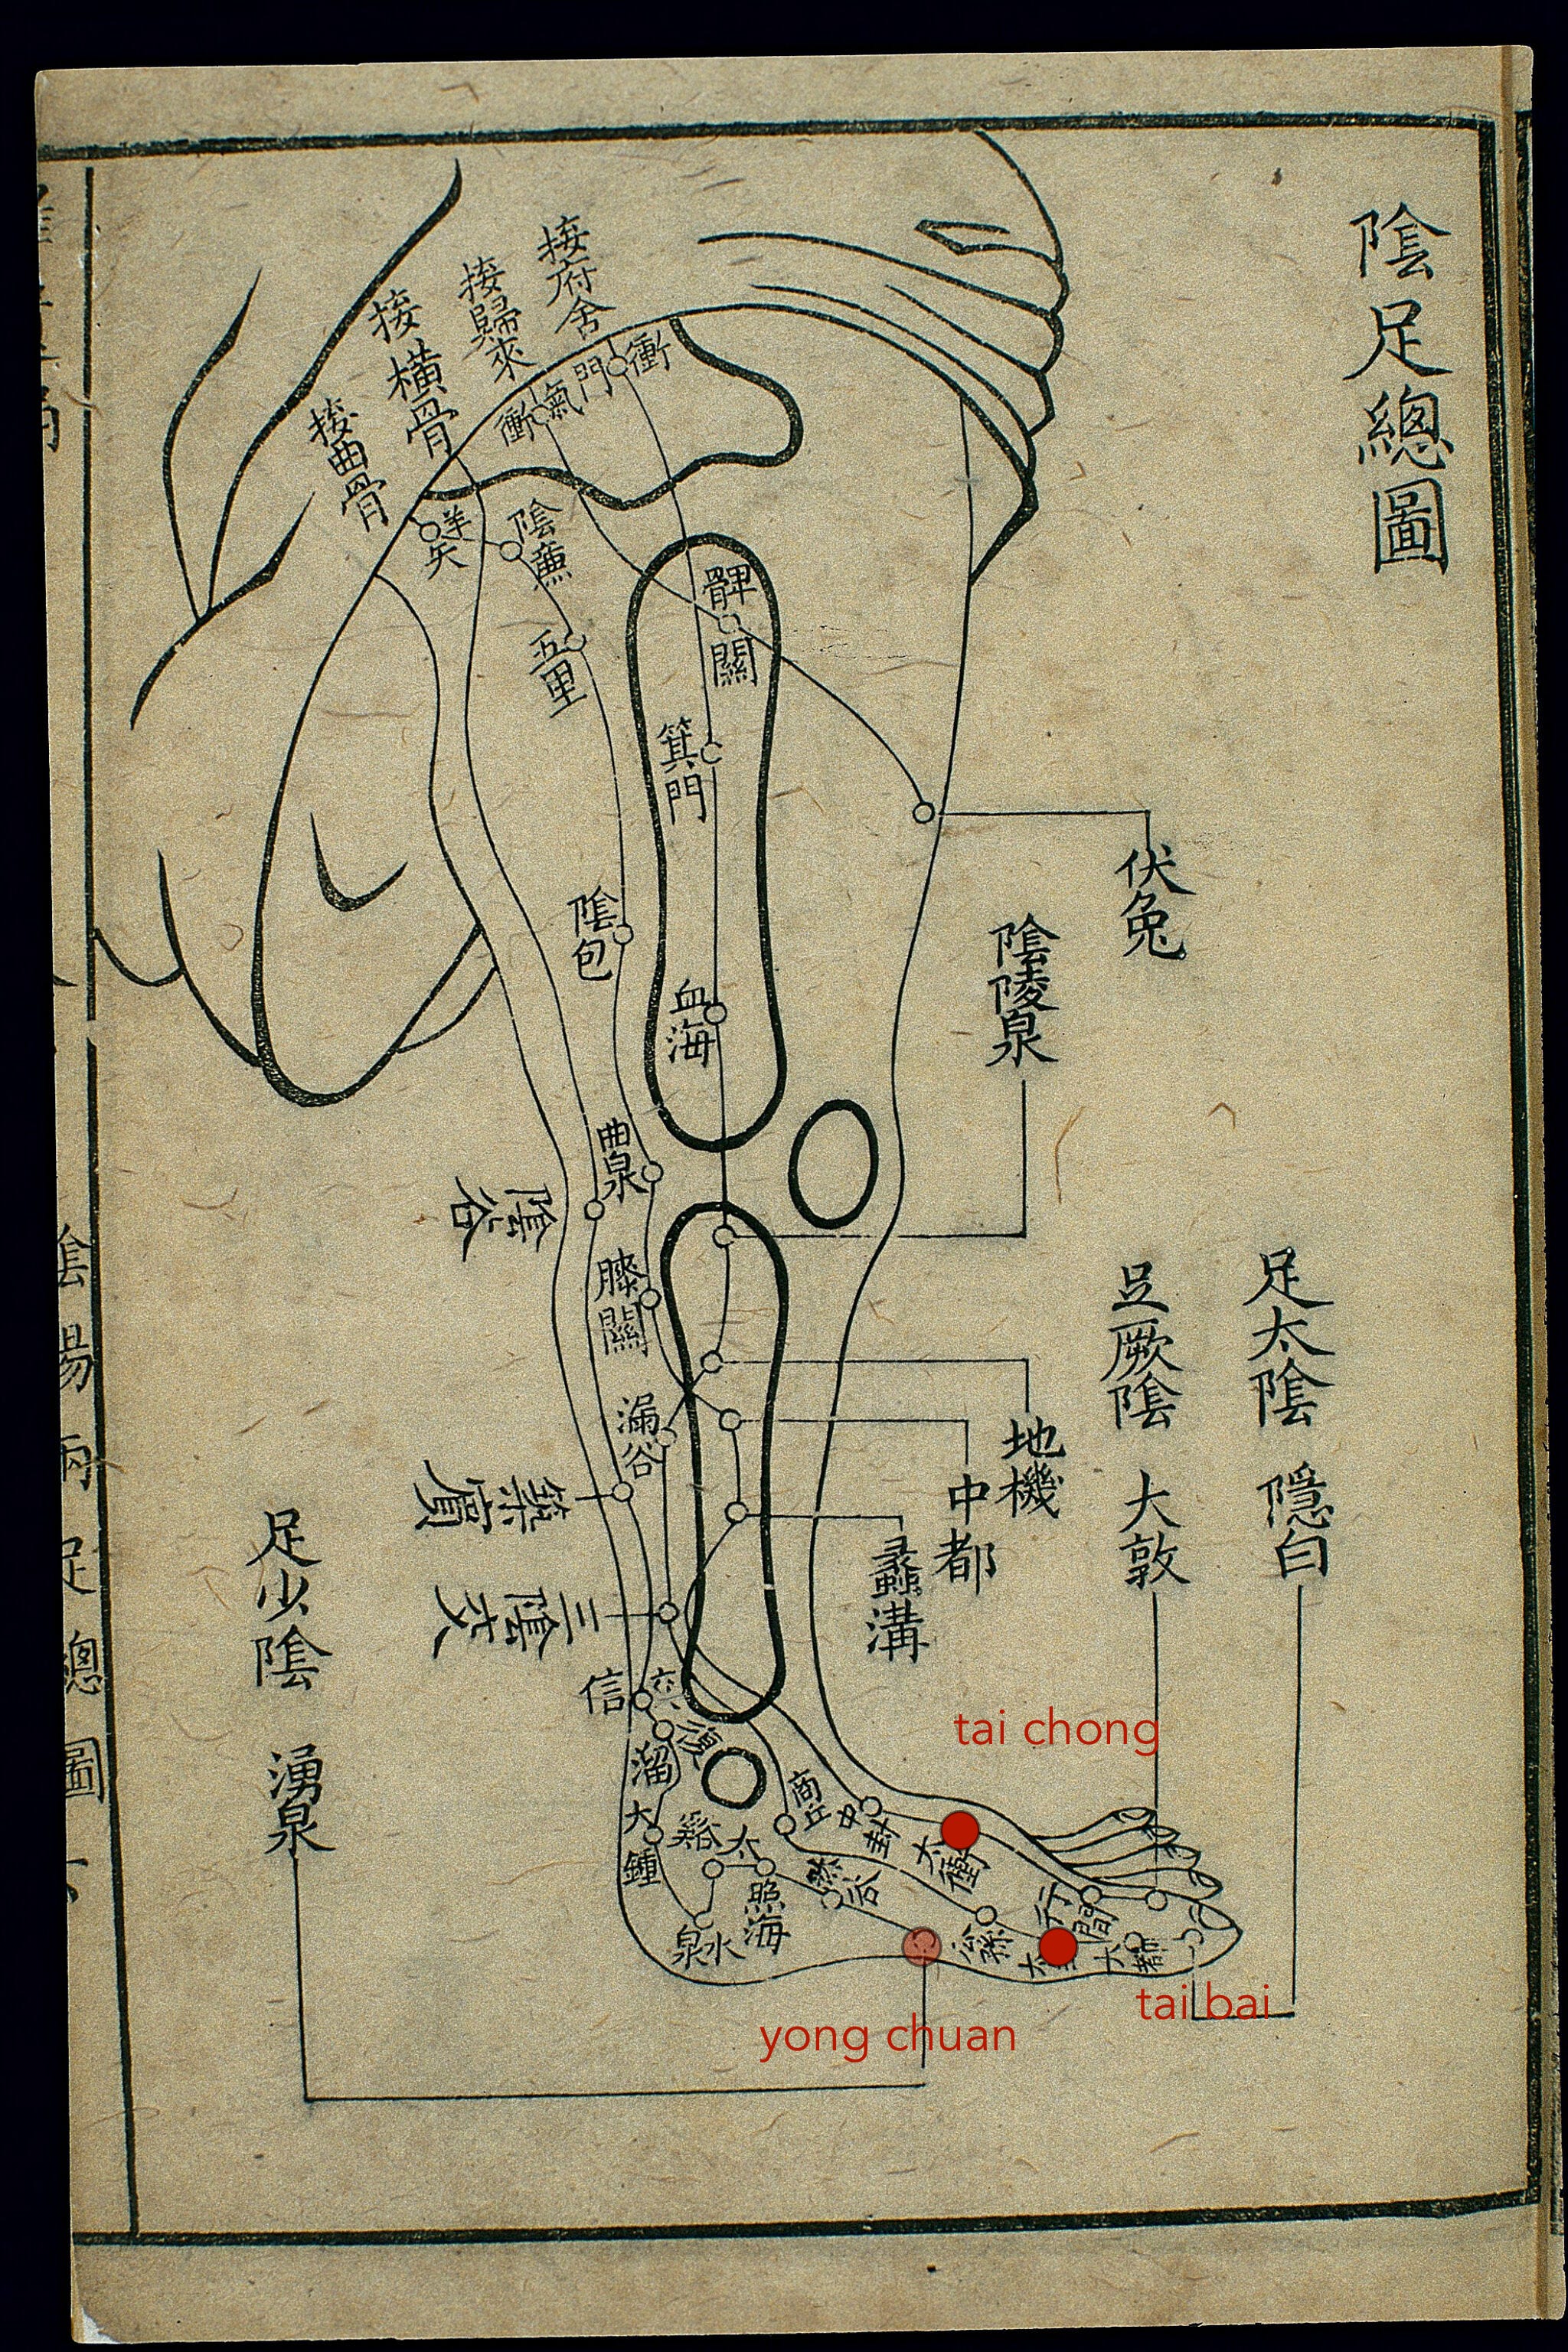 陰足總圖
接府舍
接歸來
接橫骨
接曲骨
衝門
氣衝
羊矢
陰廉
五里
髀關
箕門
伏兔
陰包
血海
陰陵泉
曲泉
陰谷
膝關
足太陰 隱白
足厥陰 大敦
地機
中都
蠡溝
漏谷
築賓
三陰交
足少陰 湧泉
交信
復溜
tai chong
商丘
中封
太衝
大鍾
太谿
照海
水泉
然谷
行間
公孫
太
大都
tai bai
yong chuan
陰陽兩足總圖